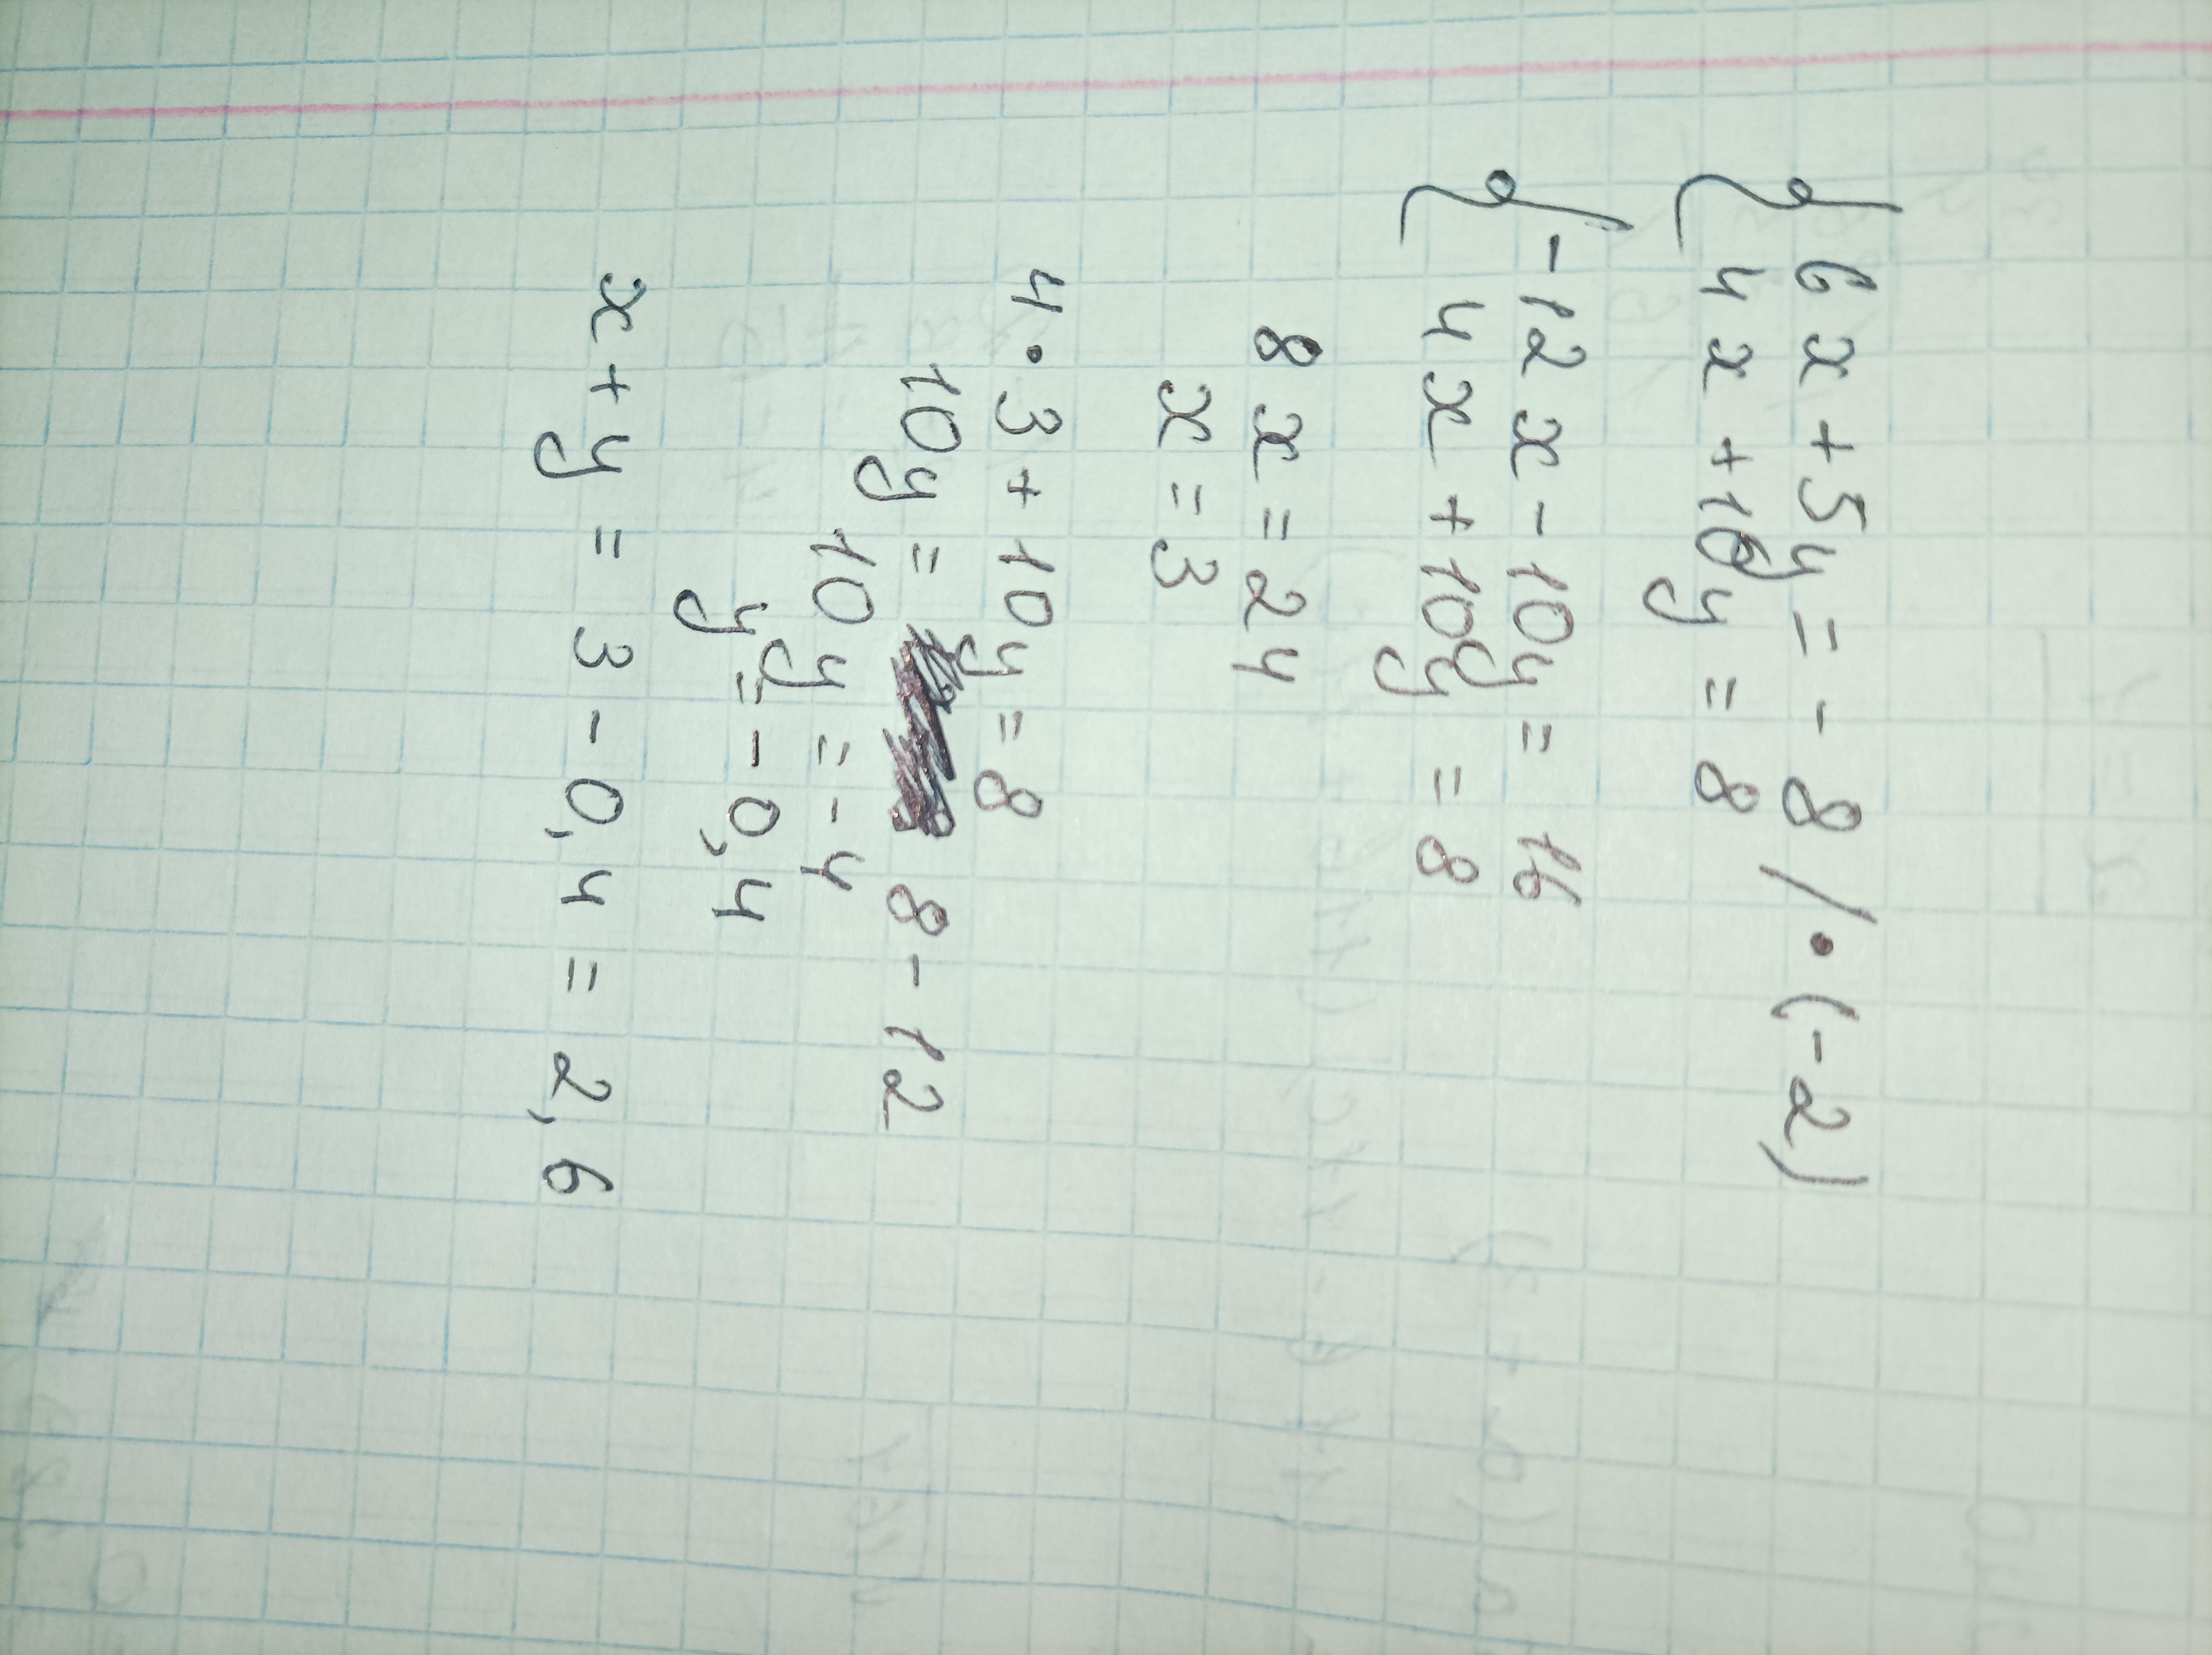 { 6x + 5y = - 8 / • (-2)
4x + 10y = 8
{ -12x - 10y = 16
4x + 10y = 8
8x = 24
x = 3
4 • 3 + 10y = 8
10y = 8 - 12
10y = - 4
y = - 0,4
x + y = 3 - 0,4 = 2,6